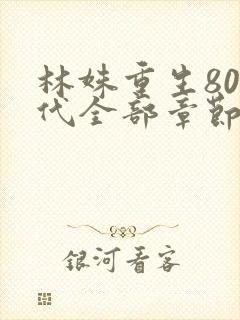 林妹重生80
代全部章節
银河看客